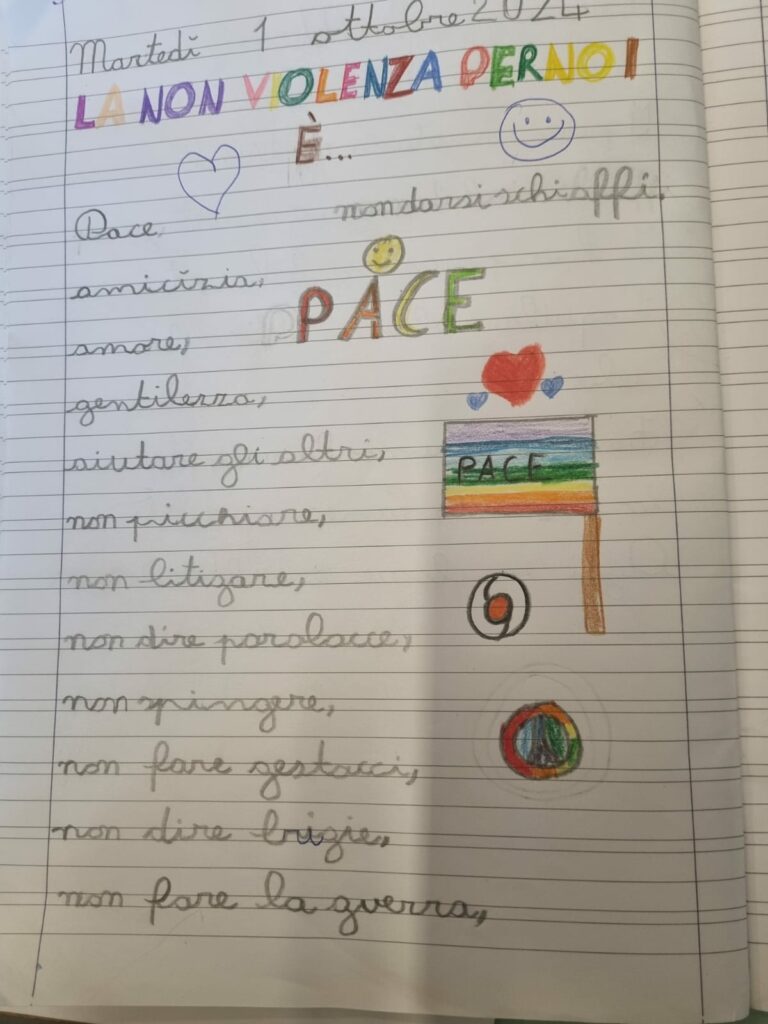 Martedì 1 ottobre 2024
LA NON VIOLENZA PER NOI
È...
Pace
non darsi schiaffi,
amicizia,
PACE
amore,
gentilezza,
aiutare gli altri,
PACE
non picchiare,
non litigare,
non dire parolacce,
non spingere,
non fare gestacci,
non dire brigie,
non fare la guerra,